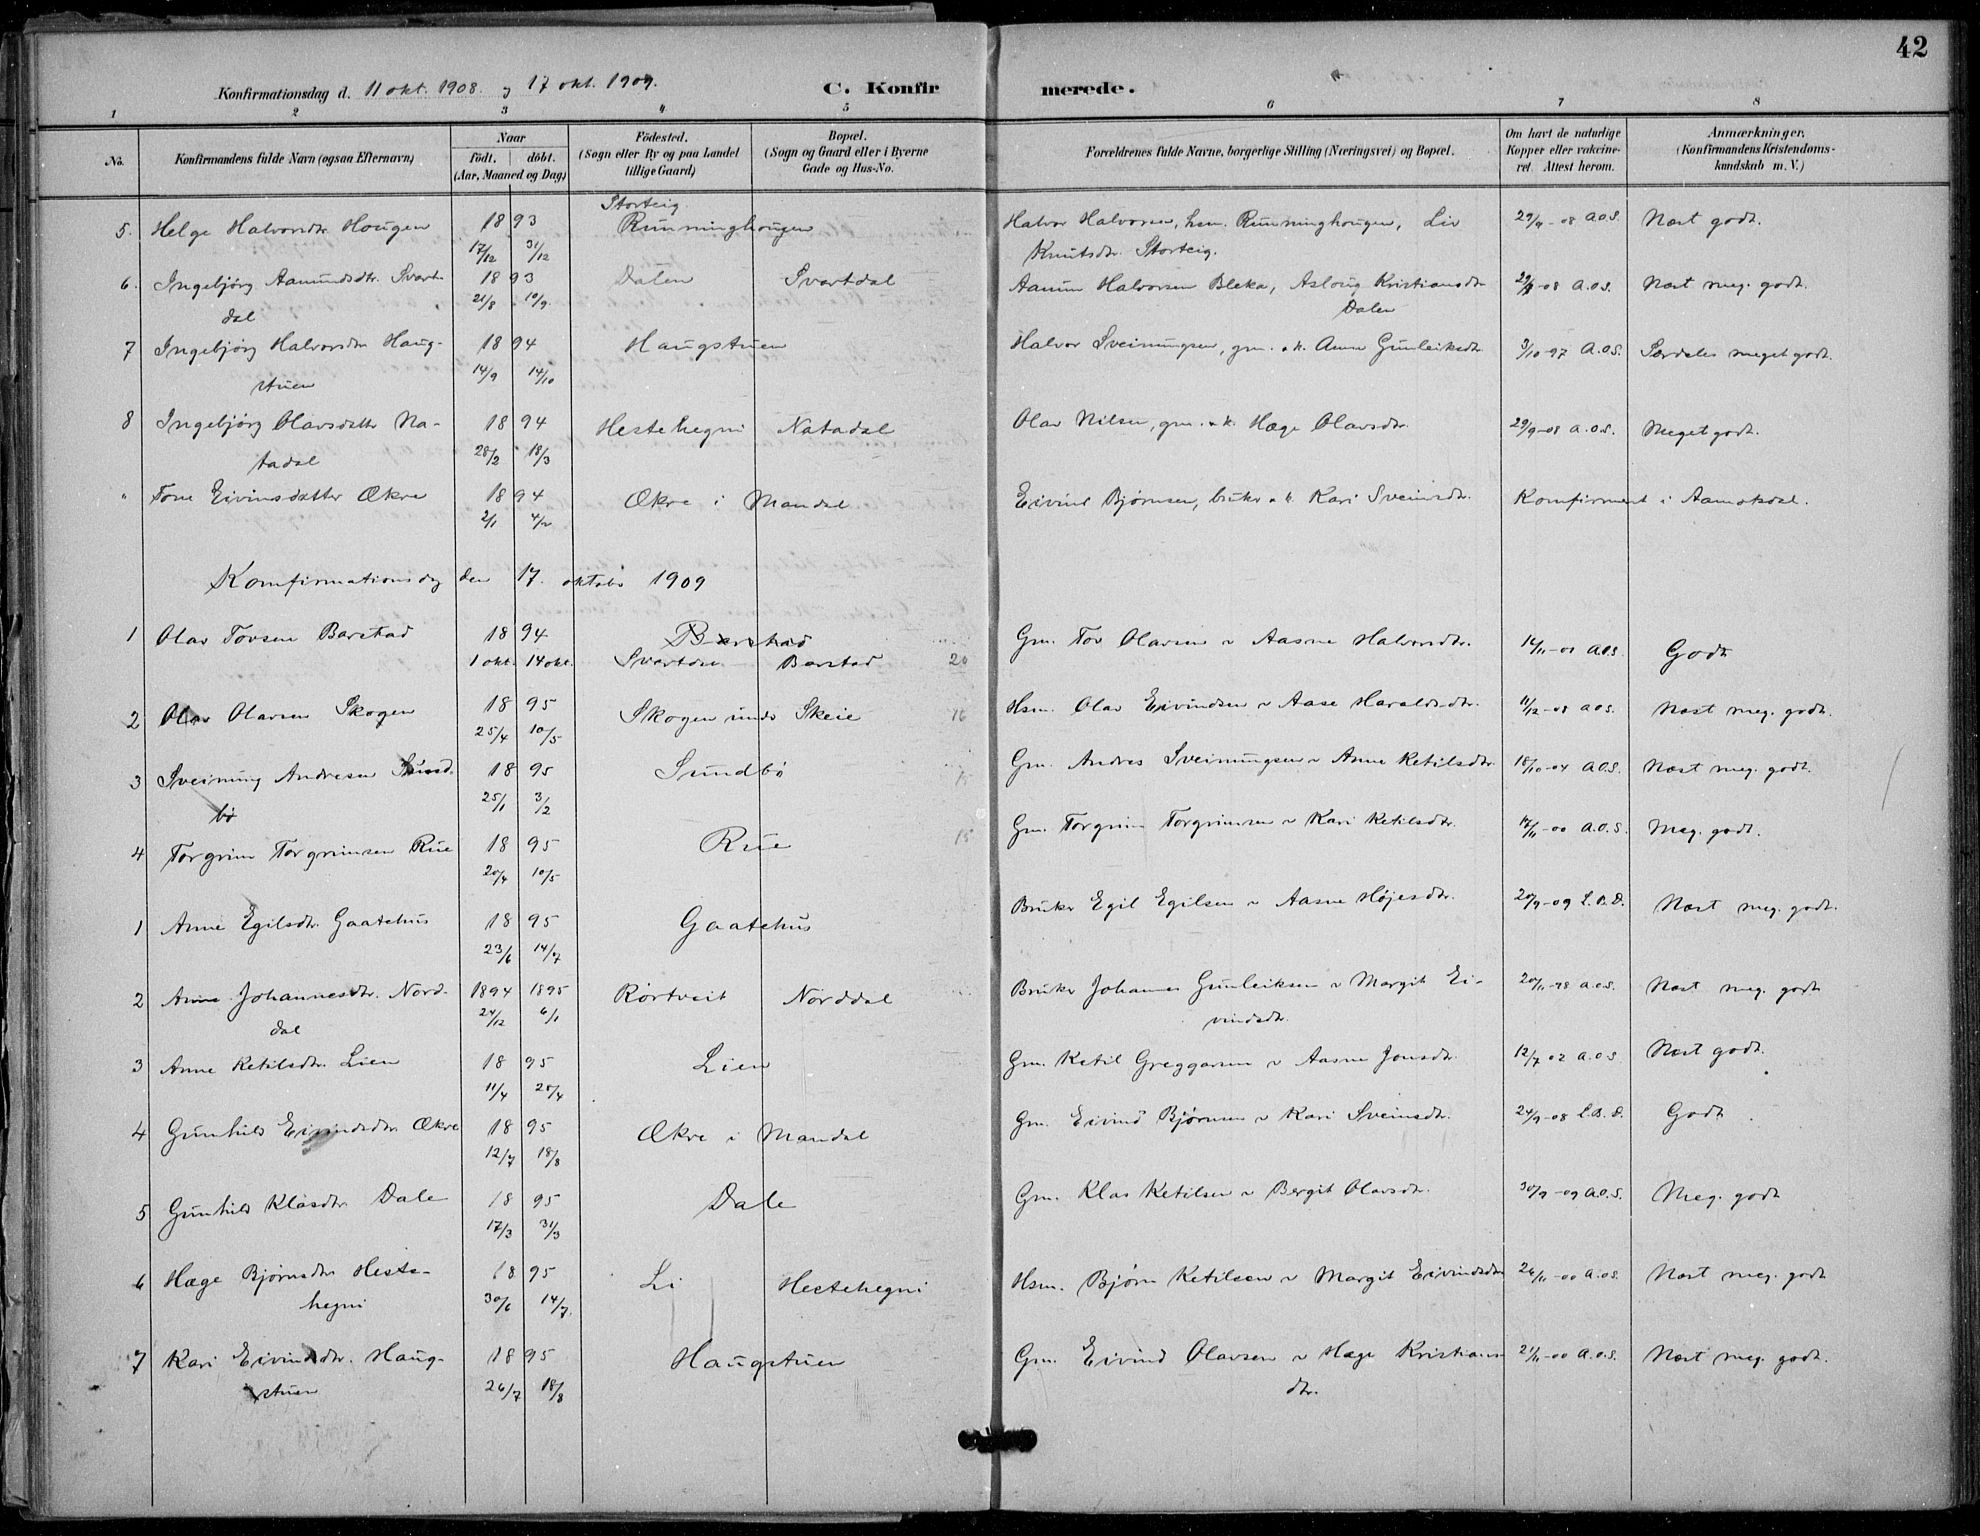 42
Konfirmationsdag d. 11 okt. 1908 og 17 okt. 1909.
C. Konfirmerede.
1 2 3 4 5 6 7 8
No.
Konfirmandens fulde Navn (ogsaa Efternavn)
Naar
født. døbt.
(Aar, Maaned og Dag)
Fødested.
(Sogn eller By og paa Landet
tillige Gaard)
Bopæl.
(Sogn og Gaard eller i Byerne
Gade og Hus-No.
Forældrenes fulde Navne, borgerlige Stilling (Næringsvei) og Bopæl.
Om havt de naturlige
Kopper eller vakcine-
ret. Attest herom.
Anmærkninger.
(Konfirmandens Kristendoms-
kundskab m. V.)
Storteig
5. Helge Halvorsdtr Hougen 1893 Runninghougen Halvor Halvorsen, hsm. Runninghougen, Liv 29/9-08 A.O.S. Næst godt.
17/12 31/12 Knutsdtr. Storteig.
6. Ingebjørg Aamundsdtr. Svart- 1893 Dalen Svartdal Aamun Halvorsen Bleka, Aslaug Kristiansdtr 29/9-08 A.O.S. Næst meg. godt.
dal 21/8 10/9. Dalen
7 Ingebjørg Halvorsdtr Haug- 1894 Haugstuen Halvor Sveinungsen, gm. o.k. Anne Gunleiksdtr 3/10-97 A.O.S. Særdeles meget godt.
stuen 14/9 14/10
8 Ingebjørg Olavsdatter Na- 1894 Hestehegni Natadal Olav Nilsen, gm. o.k. Hæge Olavsdtr. 29/9-08 A.O.S. Meget godt.
tadal 28/2 18/3
" Tone Eivinsdatter Ækre 1894 Ækre i Mandal Eivind Bjørnsen, bruker o.k. Kari Sveinsdtr. Komfirmert i Aamotsdal.
2/1 4/2
Komfirmationsdag den 17. oktober 1909
1 Olav Tovsen Barstad 1894 Barstad Gm. Tov Olavsen o Aasne Halvorsdtr. 14/11-01 A.O.S. Godt
1 okt. 14 okt. Barstad 20
2 Olav Olavsen Skogen 1895 Skogen under Skeie 16 Hsm. Olav Eivindsen o Aase Haraldsdtr. 11/12-08 A.O.S. Næst meg. godt.
25/4 10/5
3 Sveinung Andresen Sund- 1895 Sundbø 15 Gm. Andres Sveinungsen o Anne Ketilsdtr. 18/10-04 A.O.S. Næst meg. godt.
bø 25/1 3/2
4 Torgrim Torgrimsen Rue 1895 Rue 15 Gm. Torgrim Torgrimsen o Kari Ketilsdtr. 17/11-00 A.O.S. Meg. godt.
20/4 10/5
1 Anne Egilsdtr. Gaatehus 1895 Gaatehus Bruker Egil Egilsen o Aasne Højesdtr. 20/9-09 Næst meg. godt.
23/6 14/7
2 Anne Johannesdtr. Nord- 1894 1895 Rørtveit Norddal Bruker Johannes Gunleiksen o Margit Ei-
dal 24/12 6/1 vindsdtr. 20/11-98 A.O.S. Næst meg. godt
3 Anne Ketilsdtr. Lien 1895 Lien Gm. Ketil Greggarsen o Aasne Jonsdtr. 12/7 02 A.O.S. Næst godt.
11/4 25/4
4 Gunhild Eivindsdtr Ækre 1895 Ækre i Mandal Gm. Eivind Bjørnsen o Kari Sveinsdtr. 24/9-08 Godt.
12/7 18/8
5 Gunhild Klasdtr. Dale 1895 Dale Gm. Klas Ketilsen o Bergit Olavsdtr. 30/9-09 A.O.S. Meg. godt
17/3 31/3
6 Hæge Bjørnsdtr Heste- 1895 Li Hestehegni Hsm. Bjørn Ketilsen o Margit Eivindsdtr 26/11-00 A.O.S. Næst meg. godt
hegni 30/6 14/7.
7 Kari Eivindsdtr. Haug- 1895 Haugstuen Gm. Eivind Olavsen o Hæge Kristians 21/11-00 A.O.S. Næst meg. godt.
stuen 26/7 18/8 dtr.